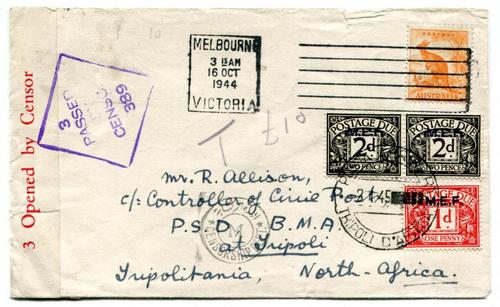 MELBOURNE
3 15AM
16 OCT
1944
VICTORIA
POSTAGE
AUSTRALIA
3
PASSED
CENSOR
389
3 Opened by Censor
T
POSTAGE DUE
M.E.F.
2d
TWO PENCE
POSTAGE DUE
M.E.F.
2d
TWO PENCE
M.E.F.
1d
ONE PENNY
TRIPOLI D'AFR
Mr. R. Allison,
c/: Controller of Civic Post
P.S.D. B.M.A.
at Tripoli
Tripolitania, North-Africa.